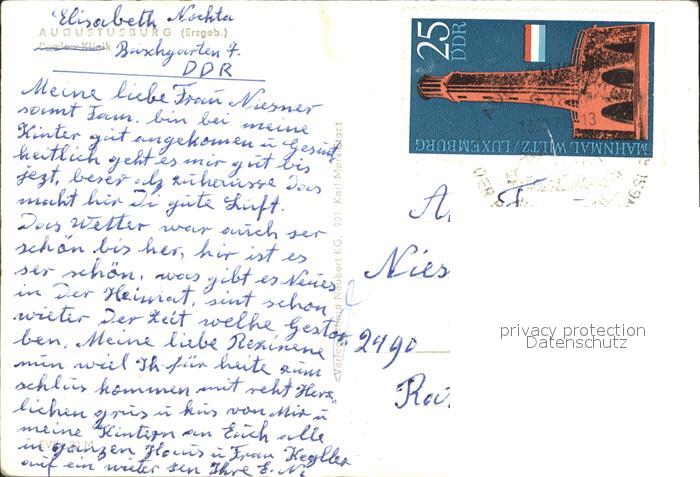 Elisabeth Nachta
AUGUSTUSBURG (Erzgeb.)
Pawlow-Klinik Bäischgarten 7.
DDR
Meine liebe Frau Niesner
samt Fam. bin bei meine
Kinter gut angekomen u Gesünt
heitlich geht es mir gut bis
jezt, beser alz zuhausse Das
macht hir Di gute Luft.
Das Wetter war auch ser
schön bis her, hir ist es
ser schön, was gibt es Neues
in Der Heimat, sint schon
wieter Der Zeit welche Gestor
ben, Meine liebe
nun wiel Ih für heite zum
schlus kommen mit reht Herz
lichen grus u kus von Mir u
meine Kintern an Euch alle
in ganzen Haus u Frau Kegller
auf ein wieter sen Ihre E. N
25 DDR
MAHNMAL WILTZ/LUXEMBURG
A Fr
Nies
2490
privacy protection
Datenschutz